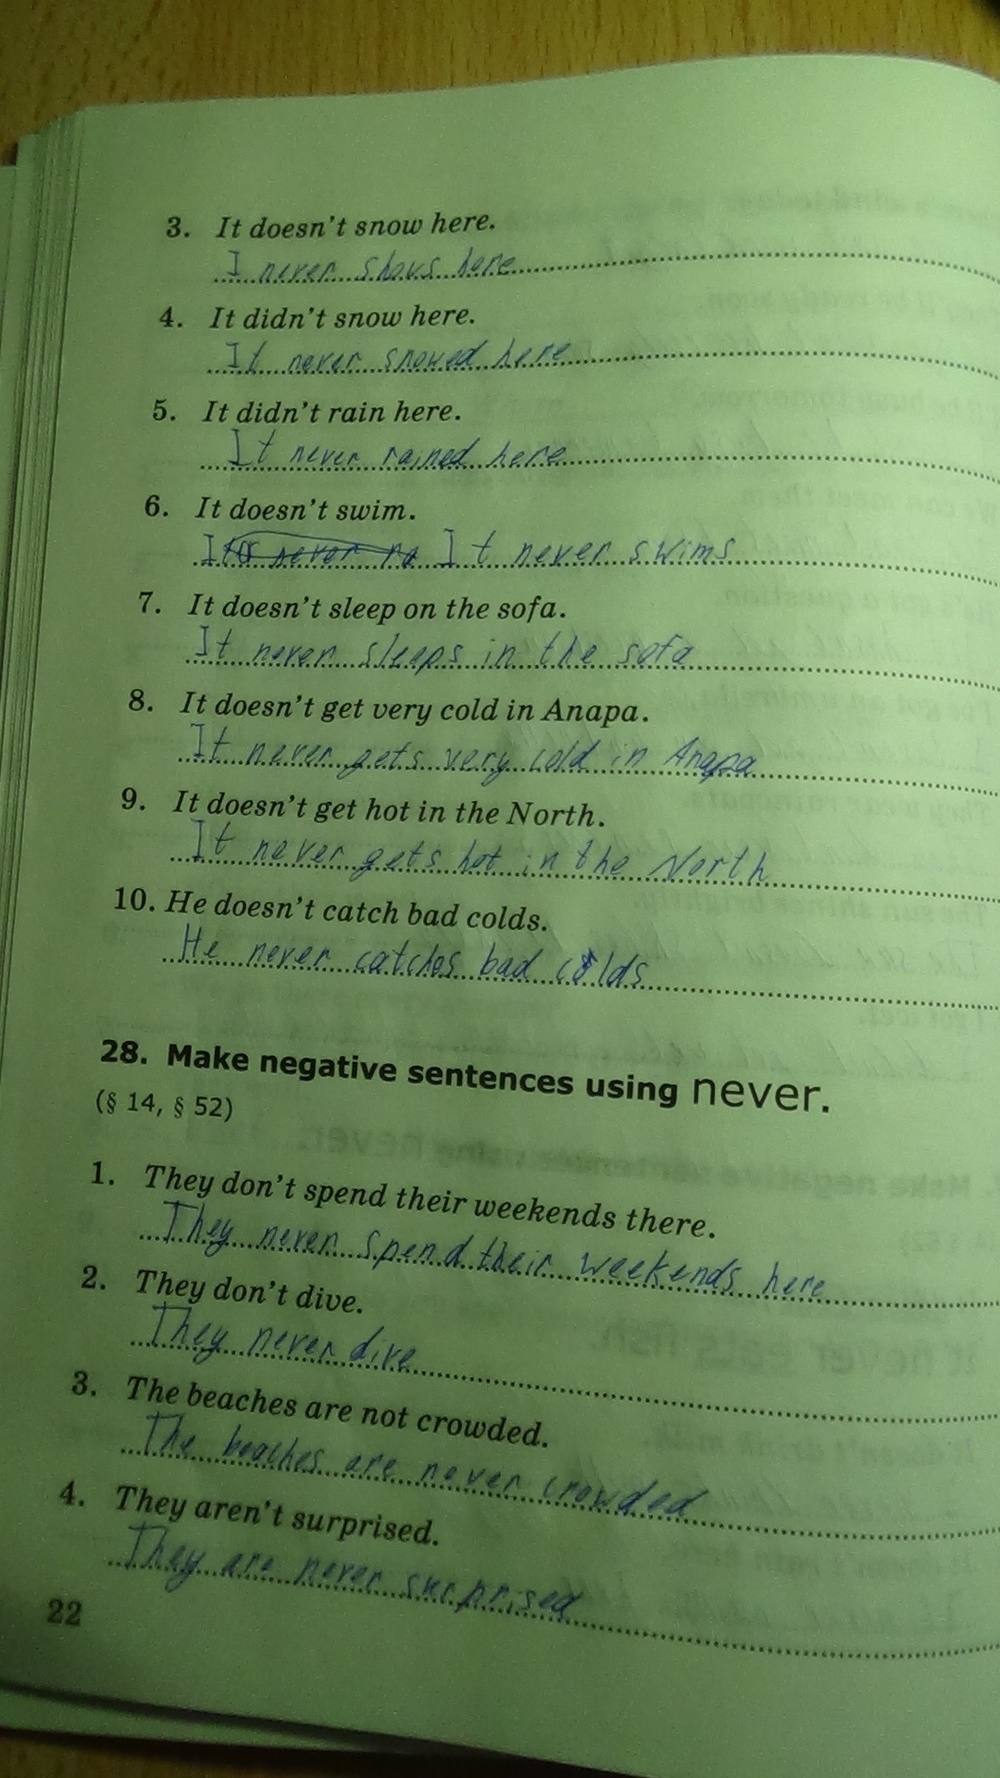 3. It doesn't snow here.
I never snows here
4. It didn't snow here.
It never snowed here
5. It didn't rain here.
It never rained here
6. It doesn't swim.
It never swims
7. It doesn't sleep on the sofa.
It never sleeps in the sofa
8. It doesn't get very cold in Anapa.
It never gets very cold in Anapa
9. It doesn't get hot in the North.
It never gets hot in the North
10. He doesn't catch bad colds.
He never catches bad colds
28. Make negative sentences using never.
(§ 14, § 52)
1. They don't spend their weekends there.
They never spend their weekends here
2. They don't dive.
They never dive
3. The beaches are not crowded.
The beaches are never crowded
4. They aren't surprised.
They are never surprised
22